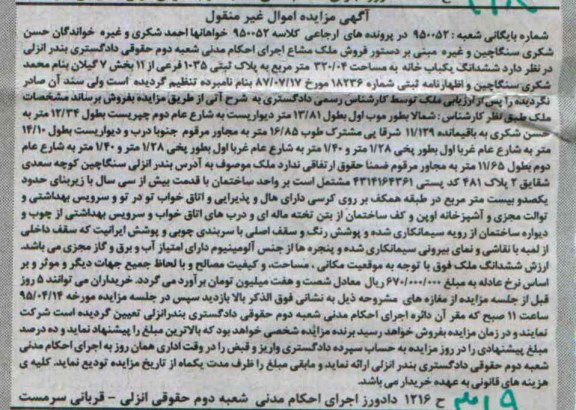 آگهی مزایده اموال غیر منقول
شماره بایگانی شعبه: ۹۵۰۰۵۲ در پرونده های ارجاعی کلاسه ۹۵۰۰۵۲ خواهانها احمد شکری و غیره خواندگان حسن
شکری سنگاچین و غیره مبنی بر دستور فروش ملک مشاع اجرای احکام مدنی شعبه دوم حقوقی دادگستری بندر انزلی
در نظر دارد ششدانگ یکباب خانه به مساحت ۳۳۰/۰۴ متر مربع به پلاک ثبتی ۱۰۳۵ فرعی از ۱۱ بخش ۷ گیلان بنام محمد
شکری سنگاچین و اظهارنامه ثبتی شماره ۱۸۲۳۶ مورخ ۸۷/۰۷/۱۷ بنام نامبرده تنظیم گردیده است ولی سند آن صادر
نگردیده را پس از ارزیابی ملک توسط کارشناس رسمی دادگستری به شرح آتی از طریق مزایده بفروش برساند مشخصات
ملک طبق نظر کارشناس: شمالا بطور موب اول بطول ۱۳/۸۱ متر دیواریست به شارع عام دوم چپریست بطول ۱۲/۳۴ متر به
حسن شکری به باقیمانده ۱۱/۱۲۹ شرقا پی مشترک طوب ۱۶/۸۵ متر به مجاور مرقوم جنوبا درب و دیواریست بطول ۱۴/۱۰
متر به شارع عام غربا اول بطور پخی ۱/۲۸ متر و ۱/۴۰ متر به شارع عام غربا اول بطور پخی ۱/۲۸ متر و ۱/۴۰ متر به شارع عام
دوم بطول ۱۱/۶۵ متر به مجاور مرقوم ضمنا حقوق ارتفاقی ندارد ملک موصوف به آدرس بندر انزلی سنگاچین کوچه سعدی
شقایق ۲ پلاک ۴۸۱ کد پستی ۴۳۱۴۱۶۴۳۶۱ مشتمل است بر واحد ساختمان با قدمت بیش از سی سال با زیربنای حدود
یکصدو بیست متر مربع در طبقه همکف بر روی کرسی دارای هال و پذیرایی و اتاق خواب تو در تو و سرویس بهداشتی و
توالت مجزی و آشپزخانه اوپن و کف ساختمان از بتن تخته ماله ای و درب های اتاق خواب و سرویس بهداشتی از چوب و
دیواره ساختمان از رویه سیمانکاری شده و پوشش رنگ و سقف اصلی با سربندی چوبی و پوشش ایرانیت که سقف داخلی
از لمبه با نقاشی و نمای بیرونی سیمانکاری شده و پنجره ها از جنس آلومینیوم دارای امتیاز آب و برق و گاز مجزی می باشد.
ارزش ششدانگ ملک فوق با توجه به موقعیت مکانی، مساحت، و کیفیت مصالح و با لحاظ جمیع جهات دیگر و موثر و بر
اساس نرخ عادله به مبلغ ۶۷۰/۰۰۰/۰۰۰ ریال معادل شصت و هفت میلیون تومان برآورد می گردد. خریداران می توانند ۵ روز
قبل از جلسه مزایده از مغازه های مشروحه ذیل به نشانی فوق الذکر بالا بازدید سپس در جلسه مزایده مورخه ۹۵/۰۴/۱۴
ساعت ۱۱ صبح که مقر آن دائره اجرای احکام مدنی شعبه دوم حقوقی دادگستری بندرانزلی تعیین گردیده است شرکت
نمایند و در زمان مزایده بفروش خواهد رسید برنده مزایده شخصی خواهد بود که بالاترین مبلغ را پیشنهاد نماید و ده درصد
مبلغ پیشنهادی را در روز مزایده به حساب سپرده دادگستری واریز و قبض را در وقت اداری همان روز به اجرای احکام مدنی
شعبه دوم حقوقی دادگستری بندر انزلی ارائه نماید و مابقی مبلغ را ظرف مدت یکماه از تاریخ مزایده تودیع نماید. کلیه ی
هزینه های قانونی به عهده خریدار می باشد.
ح ۱۲۱۶ دادورز اجرای احکام مدنی شعبه دوم حقوقی انزلی - قربانی سرمست
۳۱۹